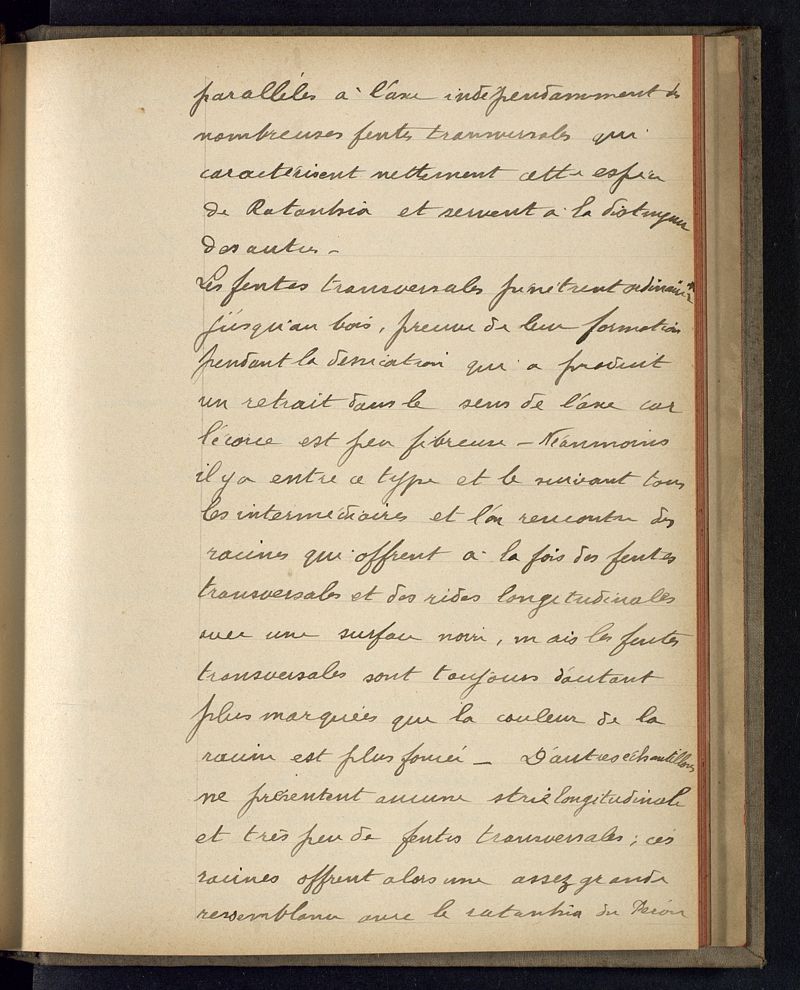 parallèles à l'axe indépendamment des
nombreuses fentes transversales qui
caractérisent nettement cette espèce
de Ratanhia et servent à la distinguer
des autres —
Les fentes transversales pénètrent ordinairt
jusqu'au bois, preuve de leur formation
pendant la dessication qui a produit
un retrait dans le sens de l'axe car
l'écorce est peu fibreuse — Néanmoins
il y a entre ce type et le suivant tous
les intermédiaires et l'on rencontre des
racines qui offrent à la fois des fentes
transversales et des rides longitudinales
avec une surface noire, mais les fentes
transversales sont toujours d'autant
plus marquées que la couleur de la
racine est plus foncée — D'autres échantillons
ne présentent aucune strie longitudinale
et très peu de fentes transversales ; ces
racines offrent alors une assez grande
ressemblance avec le ratanhia du Pérou